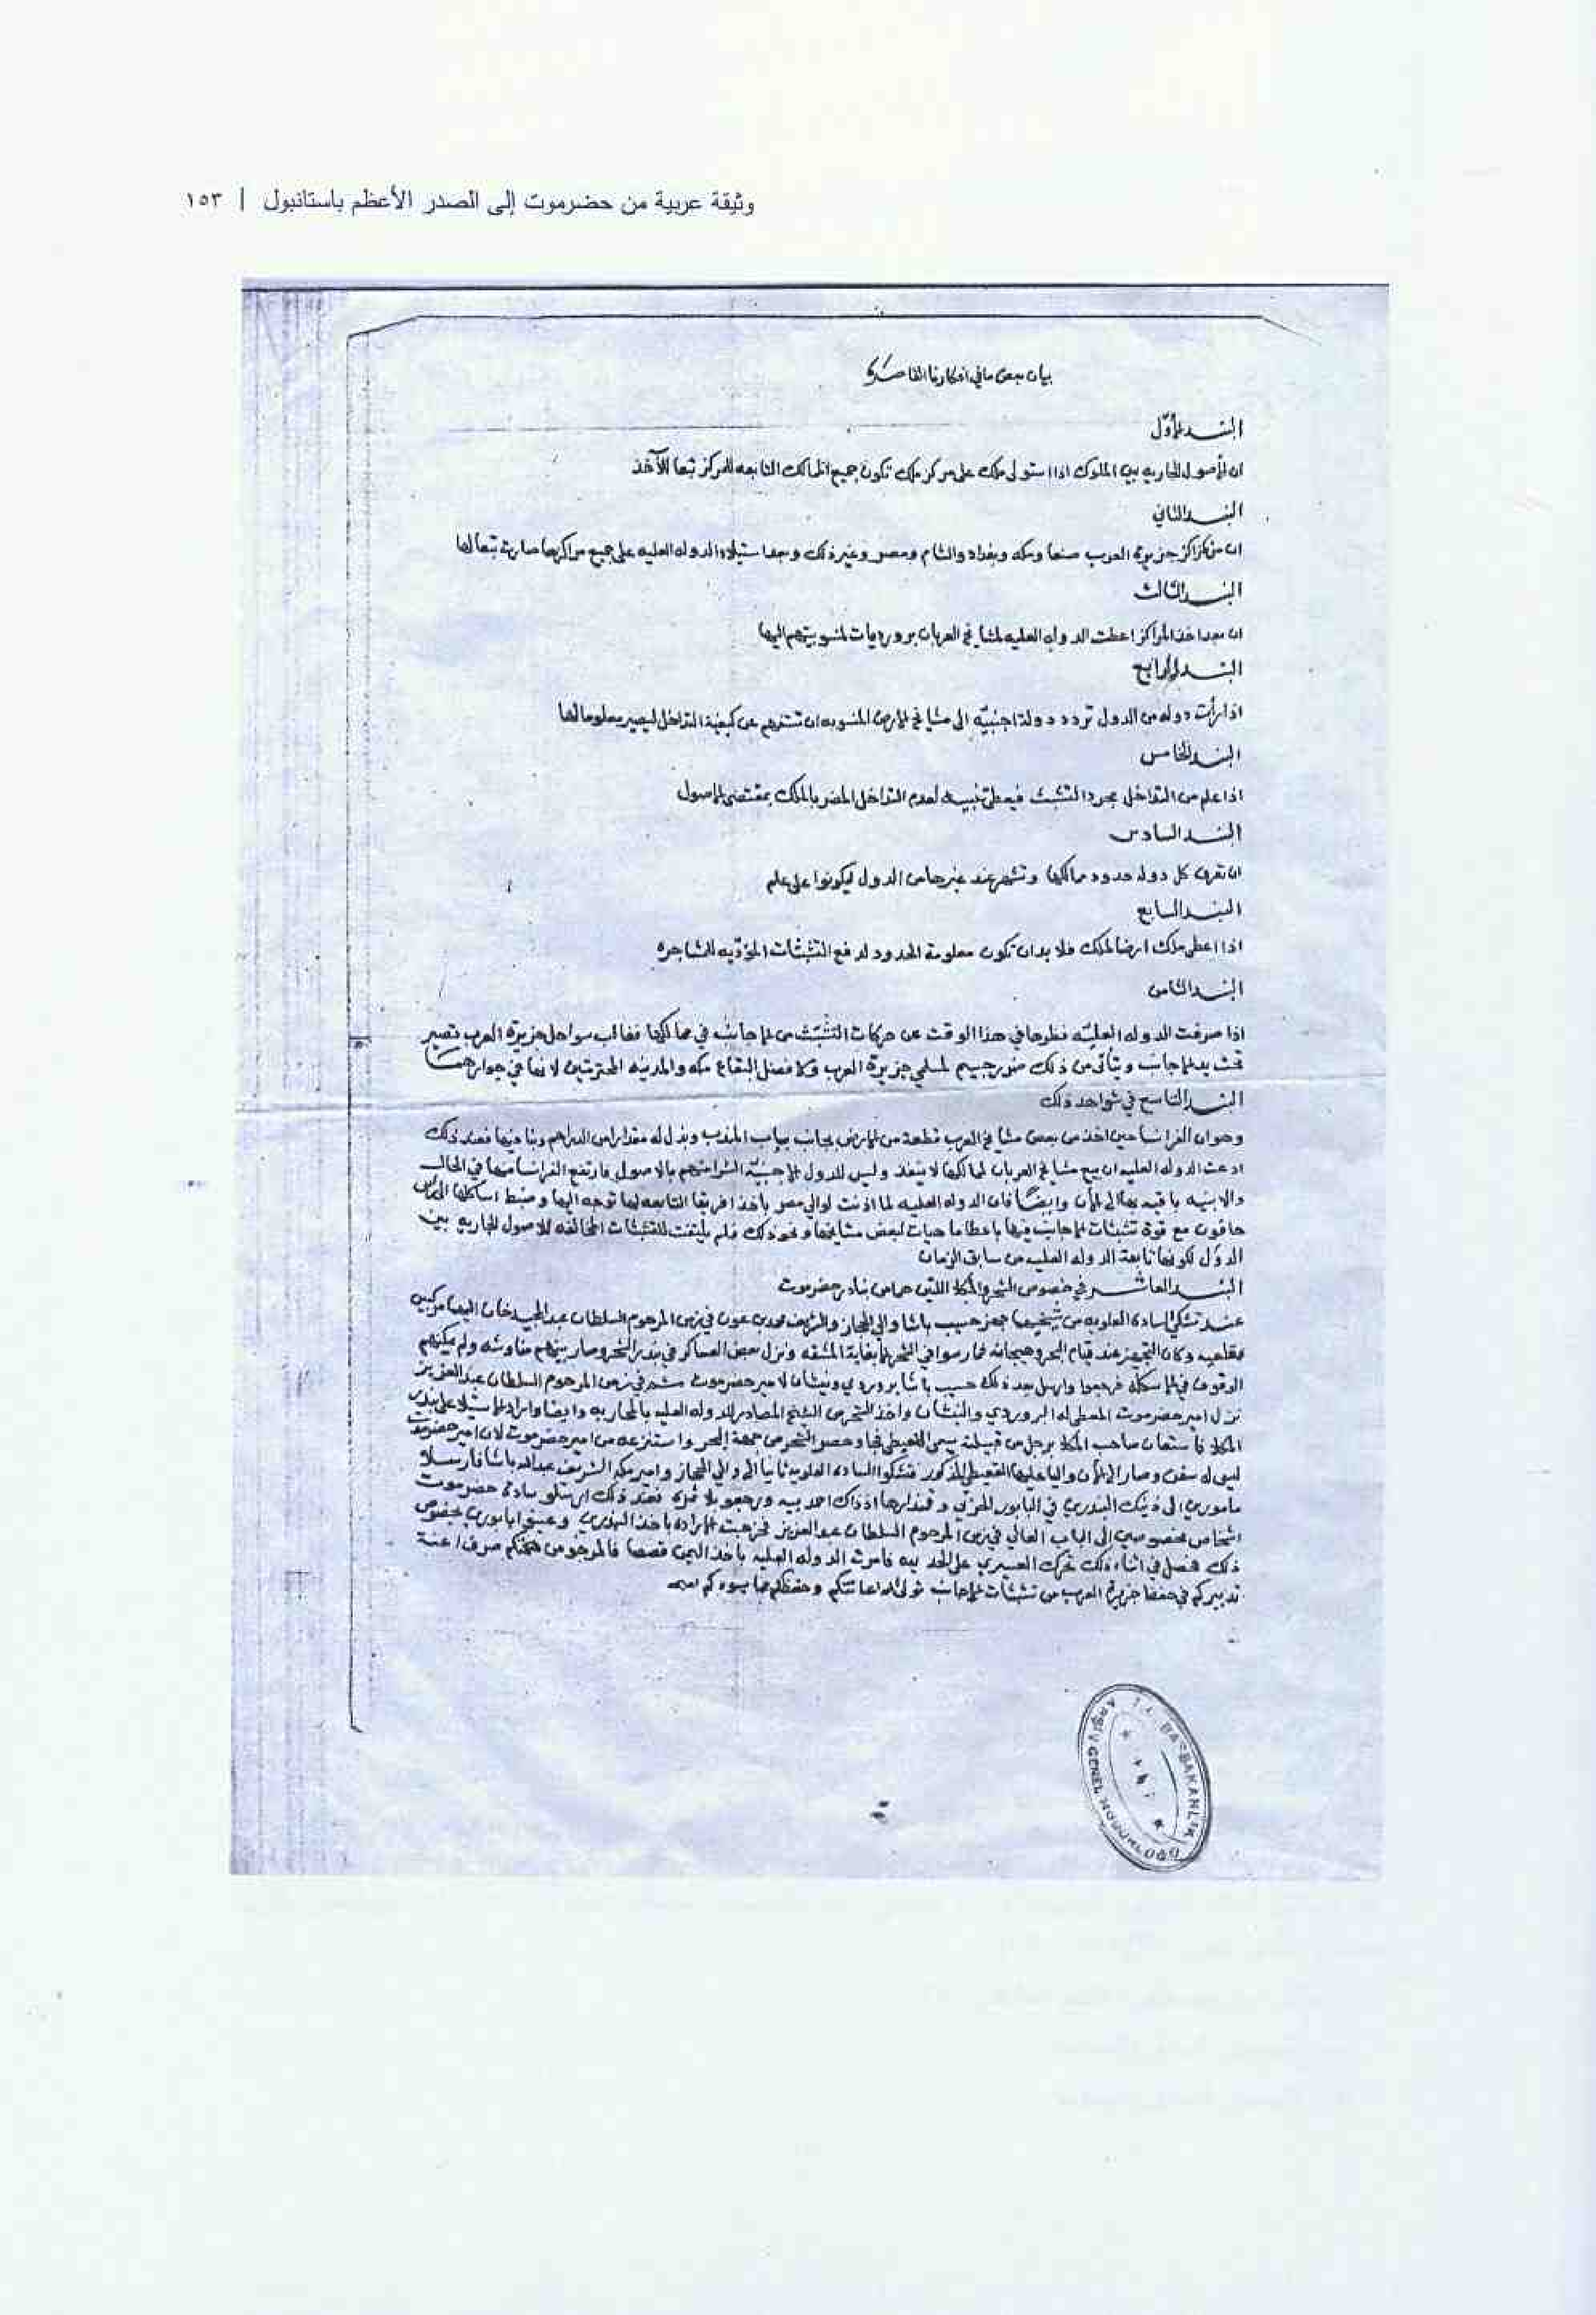 وثيقة عربية من حضرموت إلى الصدر الأعظم باستانبول | ١٥٣
بيان بعض ما في افكارنا القاصره
البند الأول
ان الأصول الجاريه بين الملوك اذا استولى ملك على مركز ملك تكون جميع الممالك التابعه للمركز تبعا للآخذ
البند الثاني
ان مراكز جزيرة العرب صنعا ومكه وبغداد والشام ومصر وغير ذلك وبعد استيلاء الدوله العليه على جميع مراكزها صارت تبعا لها
البند الثالث
ان بعد اخذ المراكز اعطت الدوله العليه لمشايخ العربان بروورديات لمنسوبيتهم اليها
البند الرابع
اذا رأت دوله من الدول تردد دولة اجنبيّه الى مشايخ الارض المنسوبه ان تستفهم عن كيفية التداخل ليصير معلوما لها
البند الخامس
اذا علم من التداخل مجرد التشبث فيعطى تنبيه لعدم التداخل المضر بالملك بمقتضى الاصول
البند السادس
ان تعرف كل دوله حدود ممالكها وتشهر عند غيرها من الدول ليكونوا على علم
البند السابع
اذا اعطى ملك ارضا لملك فلا بد ان تكون معلومة الحدود لدفع التشبثات المؤدّيه للمشاجره
البند الثامن
اذا صرفت الدوله العليّه نظرها في هذا الوقت عن حركات التشبث من الاجانب في ممالكها فغالب سواحل جزيرة العرب تصير
تحت يد الاجانب ويتأتى من ذلك ضرر جسيم لمسلمي جزيرة العرب وكافضل البقاع مكه والمدينه المحترمتين لانها في جوارهما
البند التاسع في شواهد ذلك
وهو ان الفرانسا حين اخذ من بعض مشايخ العرب قطعة من الارض بجانب بباب المندب وبذل له مقدارا من الدراهم وبنا فيها فعند ذلك
ادعت الدوله العليه ان بيع مشايخ العربان لممالكها لا ينفذ وليس للدول الاجنبيّه الشرا منهم بالاصول فارتفع الفرانسا منها في الحال
والابنيه باقيه بها الى الآن وايضًا فان الدوله العليه لما اذنت لوالي مصر بأخذ افريقا التابعه لها توجه اليها وضبط اساكلها الى رأس
حافون مع قوة تشبثات الاجانب فيها باعطا ماهيات لبعض مشايخها ونحو ذلك فلم يلتفت للتشبثات المخالفه للاصول الجاريه بين
الدول لكونها تابعة الدوله العليه من سابق الزمان
البند العاشر في خصوص الشحر والمكلا اللتين هما من بنادر حضرموت
عند تشكي السادة العلويه من شيخيها جهز حسيب باشا والي الحجاز والشريف محمد بن عون في زمن المرحوم السلطان عبد المجيد خان اليها مركبين
وكان التجهيز عند قيام البحر وهيجانه فارسوا في الشحر بغاية المشقه ونزل بعض العساكر في بندر الشحر وصار بينهم مناوشه ولم يمكنهم
الوقوف في الاسكله فرجعوا وارسل بعد ذلك حسيب باشا بروردي ونيشان لامير حضرموت ثم في زمن المرحوم السلطان عبد العزيز
نزل امير حضرموت المعطى له البروردي والنيشان واخذ الشحر من الشيخ المضادد للدوله العليه بالمحاربه وايضا اراد الاستيلا على بندر
المكلا فاستعان صاحب المكلا برجل من قبيلته يسمى القعيطي فجا وحصر الشحر من جهة البحر واستنزعه من امير حضرموت لان امير حضرموت
ليس له سفن وصار الى الآن واليا عليها القعيطي المذكور فتشكوا السادة العلويه ثانيا الى والي الحجاز وامير مكه الشريف عبد الله باشا فارسلا
مامورين الى ذينك البندرين في البابور الحربي وقبندارها اذ ذاك احمد بيه ورجعو بلا ثمرة فعند ذلك ارسلو سادة حضرموت
اشخاص مخصوصين الى الباب العالي في زمن المرحوم السلطان عبد العزيز فخرجت الاراده باخذ البندرين وعينو ا بخصوص
ذلك فحصل في اثناء ذلك تحرك العسيري على الحديده فامرت الدوله العليه بأخذ اليمن فالمرجو من همتكم صرف اعنة
تدبيركم في حفظ جزيرة العرب من تشبثات الاجانب تولى الله اعانتكم وحفظكم
T.C. BAŞBAKANLIK
GENEL MÜDÜRLÜĞÜ